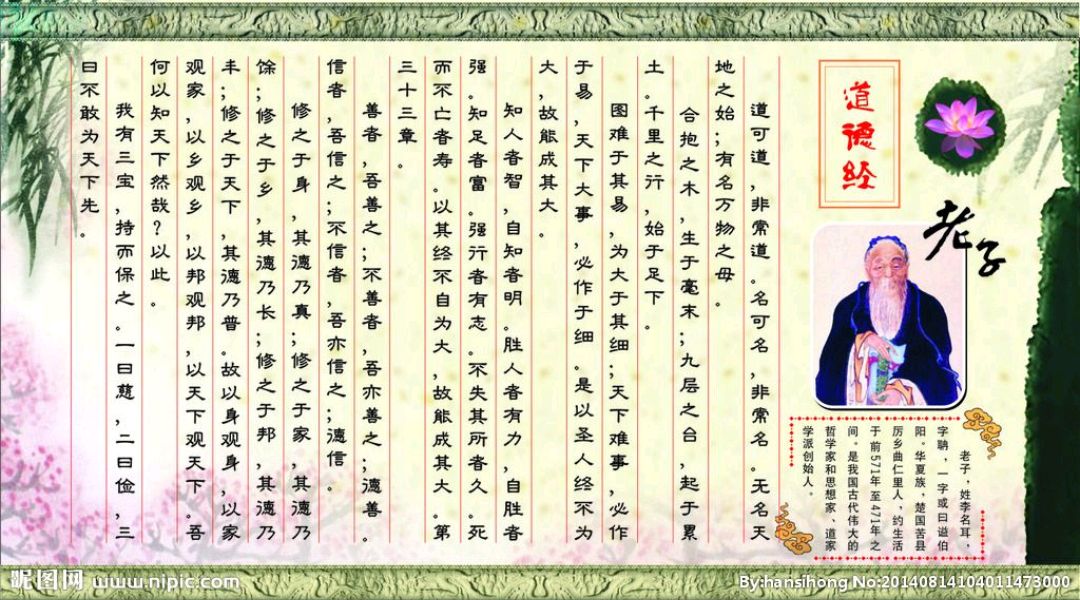 道德经
老子
老子，姓李名耳，
字聃，一字或曰谥伯
阳。华夏族，楚国苦县
厉乡曲仁里人，约生活
于前571年至471年之
间。是我国古代伟大的
哲学家和思想家、道家
学派创始人。
道可道，非常道。名可名，非常名。无名天
地之始；有名万物之母。
合抱之木，生于毫末；九层之台，起于累
土。千里之行，始于足下。
图难于其易，为大于其细；天下难事，必作
于易，天下大事，必作于细。是以圣人终不为
大，故能成其大。
知人者智，自知者明。胜人者有力，自胜者
强。知足者富。强行者有志。不失其所者久。死
而不亡者寿。以其终不自为大，故能成其大。第
三十三章。
善者，吾善之；不善者，吾亦善之；德善。
信者，吾信之；不信者，吾亦信之；德信。
修之于身，其德乃真；修之于家，其德乃
馀；修之于乡，其德乃长；修之于邦，其德乃
丰；修之于天下，其德乃普。故以身观身，以家
观家，以乡观乡，以邦观邦，以天下观天下。吾
何以知天下然哉？以此。
我有三宝，持而保之。一曰慈，二曰俭，三
曰不敢为天下先。
昵图网 www.nipic.com
By:hansihong No:20140814104011473000